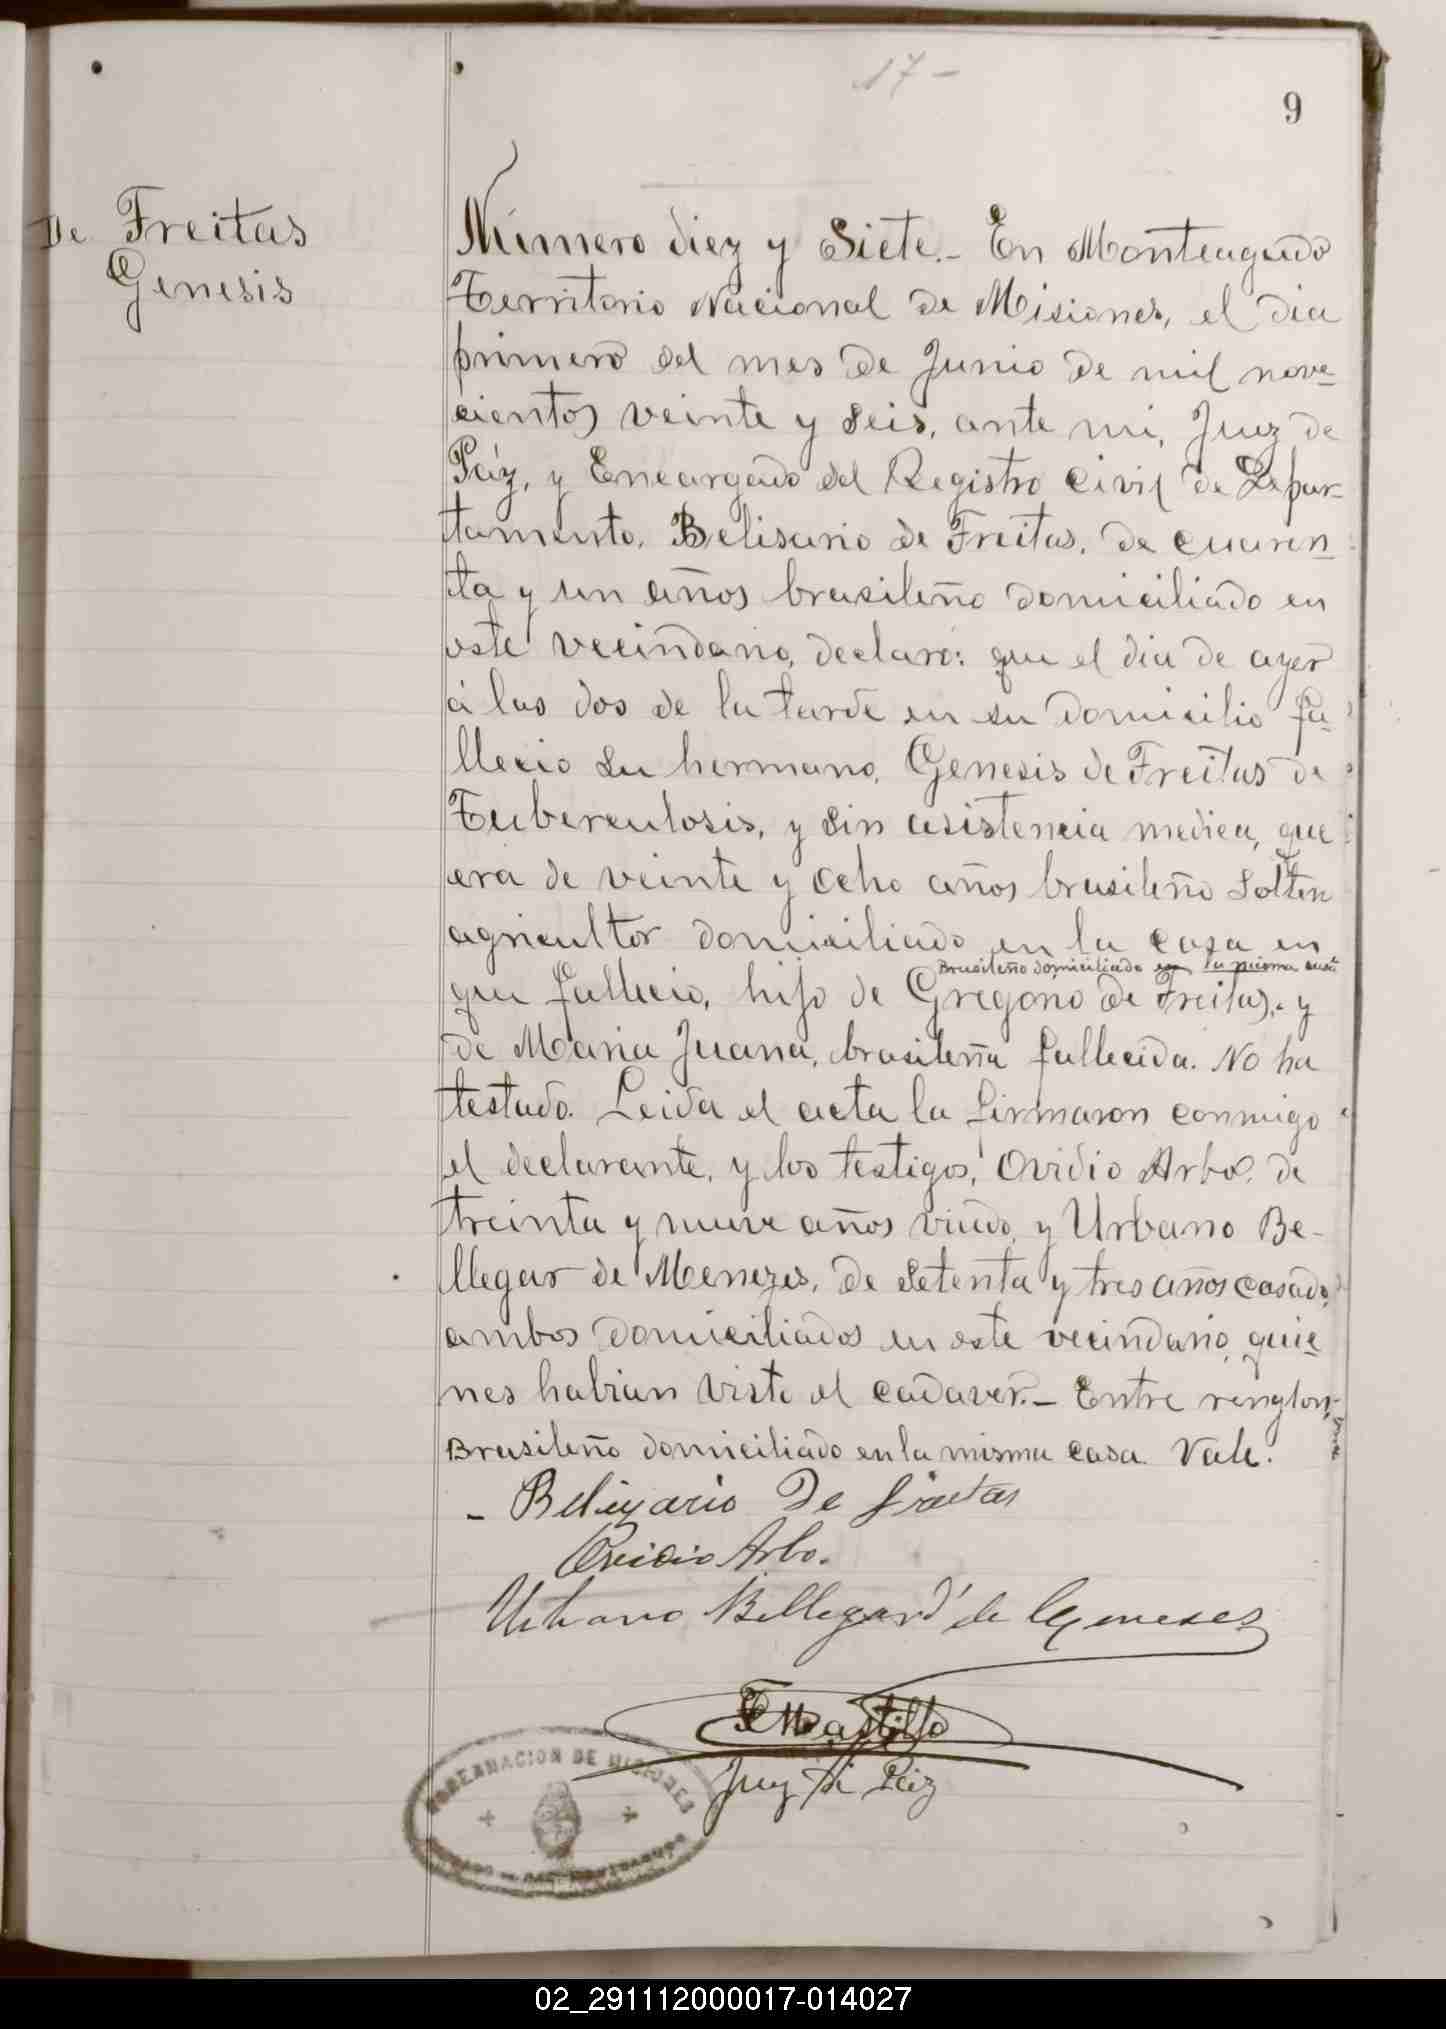 17-
9
De Freitas
Genesis
Número diez y Siete.- En Monteagudo
Territorio Nacional de Misiones, el dia
primero del mes de Junio de mil nove-
cientos veinte y seis, ante mi, Juez de
Páz, y Encargado del Registro Civil de Depar-
tamento, Belisario de Freitas, de cuaren-
ta y un años brasileño domiciliado en
este vecindario, declaró: que el dia de ayer
á las dos de la tarde en su domicilio fa-
llecio su hermano, Genesis de Freitas de
Tuberculosis, y sin asistencia medica, que
era de veinte y ocho años brasileño Solten
agricultor domiciliado en la casa en
Brasileño domiciliado en la misma casa
que fallecio, hijo de Gregorio de Freitas, y
de Maria Juana, brasileña fallecida. No ha
testado. Leida el acta la firmaron conmigo
el declarante, y los testigos, Ovidio Arbo, de
treinta y nueve años viudo, y Urbano Be-
llegar de Menezes, de setenta y tres años casado,
ambos domiciliados en este vecindario, quie-
nes habian visto el cadaver.- Entre renglon,
Brasileño domiciliado en la misma casa. Vale.
- Belizario De Freitas
Ovidio Arbo.
Urbano Bellegard de Menezes
Castillo
Juez de Paz
GOBERNACION DE MISIONES
02_291112000017-014027